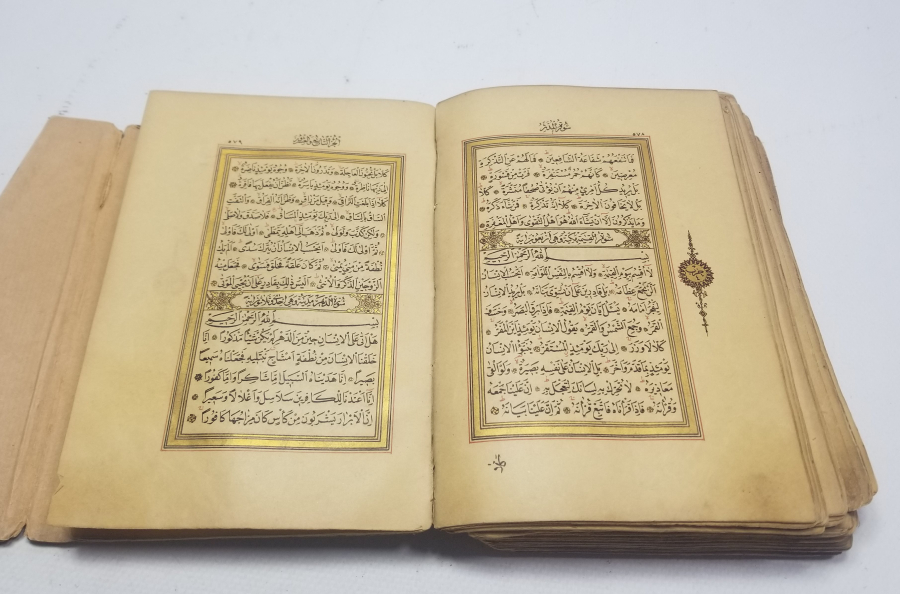 سورة المدثر
٥٧٨
فَمَا تَنْفَعُهُمْ شَفَاعَةُ الشَّافِعِينَ فَمَا لَهُمْ عَنِ التَّذْكِرَةِ
مُعْرِضِينَ كَأَنَّهُمْ حُمُرٌ مُسْتَنْفِرَةٌ فَرَّتْ مِنْ قَسْوَرَةٍ
بَلْ يُرِيدُ كُلُّ امْرِئٍ مِنْهُمْ أَنْ يُؤْتَى صُحُفًا مُنَشَّرَةً كَلَّا
بَلْ لَا يَخَافُونَ الْآخِرَةَ كَلَّا إِنَّهُ تَذْكِرَةٌ فَمَنْ شَاءَ ذَكَرَهُ
وَمَا يَذْكُرُونَ إِلَّا أَنْ يَشَاءَ اللَّهُ هُوَ أَهْلُ التَّقْوَى وَأَهْلُ الْمَغْفِرَةِ
سورة القيمة مكية وهي اربعون اية
بِسْمِ اللَّهِ الرَّحْمَنِ الرَّحِيمِ
لَا أُقْسِمُ بِيَوْمِ الْقِيمَةِ وَلَا أُقْسِمُ بِالنَّفْسِ اللَّوَّامَةِ أَيَحْسَبُ الْإِنْسَانُ
أَلَّنْ نَجْمَعَ عِظَامَهُ بَلَى قَادِرِينَ عَلَى أَنْ نُسَوِّيَ بَنَانَهُ بَلْ يُرِيدُ الْإِنْسَانُ
لِيَفْجُرَ أَمَامَهُ يَسْئَلُ أَيَّانَ يَوْمُ الْقِيمَةِ فَإِذَا بَرِقَ الْبَصَرُ وَخَسَفَ
الْقَمَرُ وَجُمِعَ الشَّمْسُ وَالْقَمَرُ يَقُولُ الْإِنْسَانُ يَوْمَئِذٍ أَيْنَ الْمَفَرُّ
كَلَّا لَا وَزَرَ إِلَى رَبِّكَ يَوْمَئِذٍ الْمُسْتَقَرُّ يُنَبَّؤُا الْإِنْسَانُ
يَوْمَئِذٍ بِمَا قَدَّمَ وَأَخَّرَ بَلِ الْإِنْسَانُ عَلَى نَفْسِهِ بَصِيرَةٌ وَلَوْ أَلْقَى
مَعَاذِيرَهُ لَا تُحَرِّكْ بِهِ لِسَانَكَ لِتَعْجَلَ بِهِ إِنَّ عَلَيْنَا جَمْعَهُ
وَقُرْآنَهُ فَإِذَا قَرَأْنَاهُ فَاتَّبِعْ قُرْآنَهُ ثُمَّ إِنَّ عَلَيْنَا بَيَانَهُ
كلا
الجزء التاسع والعشرون
٥٧٩
كَلَّا بَلْ تُحِبُّونَ الْعَاجِلَةَ وَتَذَرُونَ الْآخِرَةَ وُجُوهٌ يَوْمَئِذٍ نَاضِرَةٌ
إِلَى رَبِّهَا نَاظِرَةٌ وَوُجُوهٌ يَوْمَئِذٍ بَاسِرَةٌ تَظُنُّ أَنْ يُفْعَلَ بِهَا فَاقِرَةٌ
كَلَّا إِذَا بَلَغَتِ التَّرَاقِيَ وَقِيلَ مَنْ رَاقٍ وَظَنَّ أَنَّهُ الْفِرَاقُ وَالْتَفَّتِ
السَّاقُ بِالسَّاقِ إِلَى رَبِّكَ يَوْمَئِذٍ الْمَسَاقُ فَلَا صَدَّقَ وَلَا صَلَّى
وَلَكِنْ كَذَّبَ وَتَوَلَّى ثُمَّ ذَهَبَ إِلَى أَهْلِهِ يَتَمَطَّى أَوْلَى لَكَ فَأَوْلَى
ثُمَّ أَوْلَى لَكَ فَأَوْلَى أَيَحْسَبُ الْإِنْسَانُ أَنْ يُتْرَكَ سُدًى أَلَمْ يَكُ
نُطْفَةً مِنْ مَنِيٍّ يُمْنَى ثُمَّ كَانَ عَلَقَةً فَخَلَقَ فَسَوَّى فَجَعَلَ مِنْهُ
الزَّوْجَيْنِ الذَّكَرَ وَالْأُنْثَى أَلَيْسَ ذَلِكَ بِقَادِرٍ عَلَى أَنْ يُحْيِيَ الْمَوْتَى
سورة الدهر مدنية وهي احدى وثلثون اية
بِسْمِ اللَّهِ الرَّحْمَنِ الرَّحِيمِ
هَلْ أَتَى عَلَى الْإِنْسَانِ حِينٌ مِنَ الدَّهْرِ لَمْ يَكُنْ شَيْئًا مَذْكُورًا إِنَّا
خَلَقْنَا الْإِنْسَانَ مِنْ نُطْفَةٍ أَمْشَاجٍ نَبْتَلِيهِ فَجَعَلْنَاهُ سَمِيعًا
بَصِيرًا إِنَّا هَدَيْنَاهُ السَّبِيلَ إِمَّا شَاكِرًا وَإِمَّا كَفُورًا
إِنَّا أَعْتَدْنَا لِلْكَافِرِينَ سَلَاسِلَ وَأَغْلَالًا وَسَعِيرًا
إِنَّ الْأَبْرَارَ يَشْرَبُونَ مِنْ كَأْسٍ كَانَ مِزَاجُهَا كَافُورًا